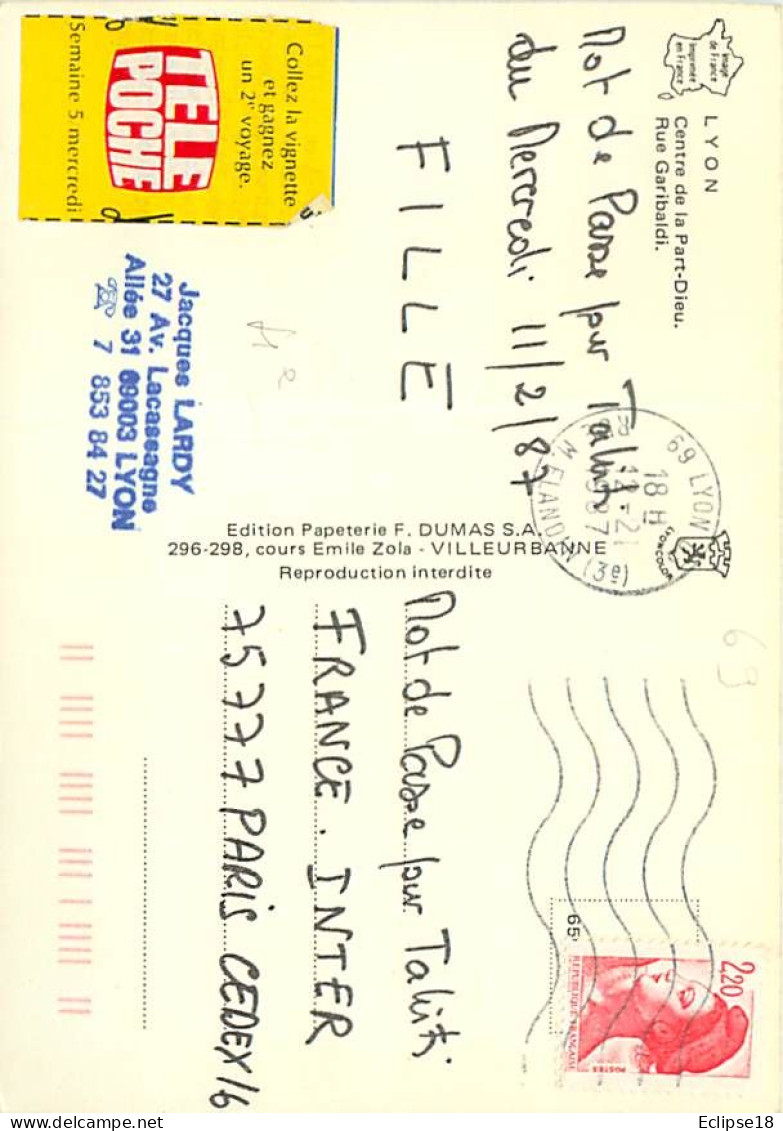 Image
de France
Imprimée
en France
LYON
Centre de la Part-Dieu.
Rue Garibaldi.
Mot de Passe pour Tahiti
du Mercredi 11/2/87
FILLE
Collez la vignette
et gagnez
un 2e voyage.
TELE
POCHE
Semaine 5 mercredi
Jacques LARDY
27 Av. Lacassagne
Allée 31 69003 LYON
☎ 7 853 84 27
Edition Papeterie F. DUMAS S.A.
296-298, cours Emile Zola - VILLEURBANNE
Reproduction interdite
LYONCOLOR
69 LYON
18 H
12-2
1987
(3e)
69
2,20
REPUBLIQUE FRANÇAISE
POSTES
65
Mot de Passe pour Tahiti
FRANCE. INTER
75777 PARIS CEDEX 16
Eclipse18